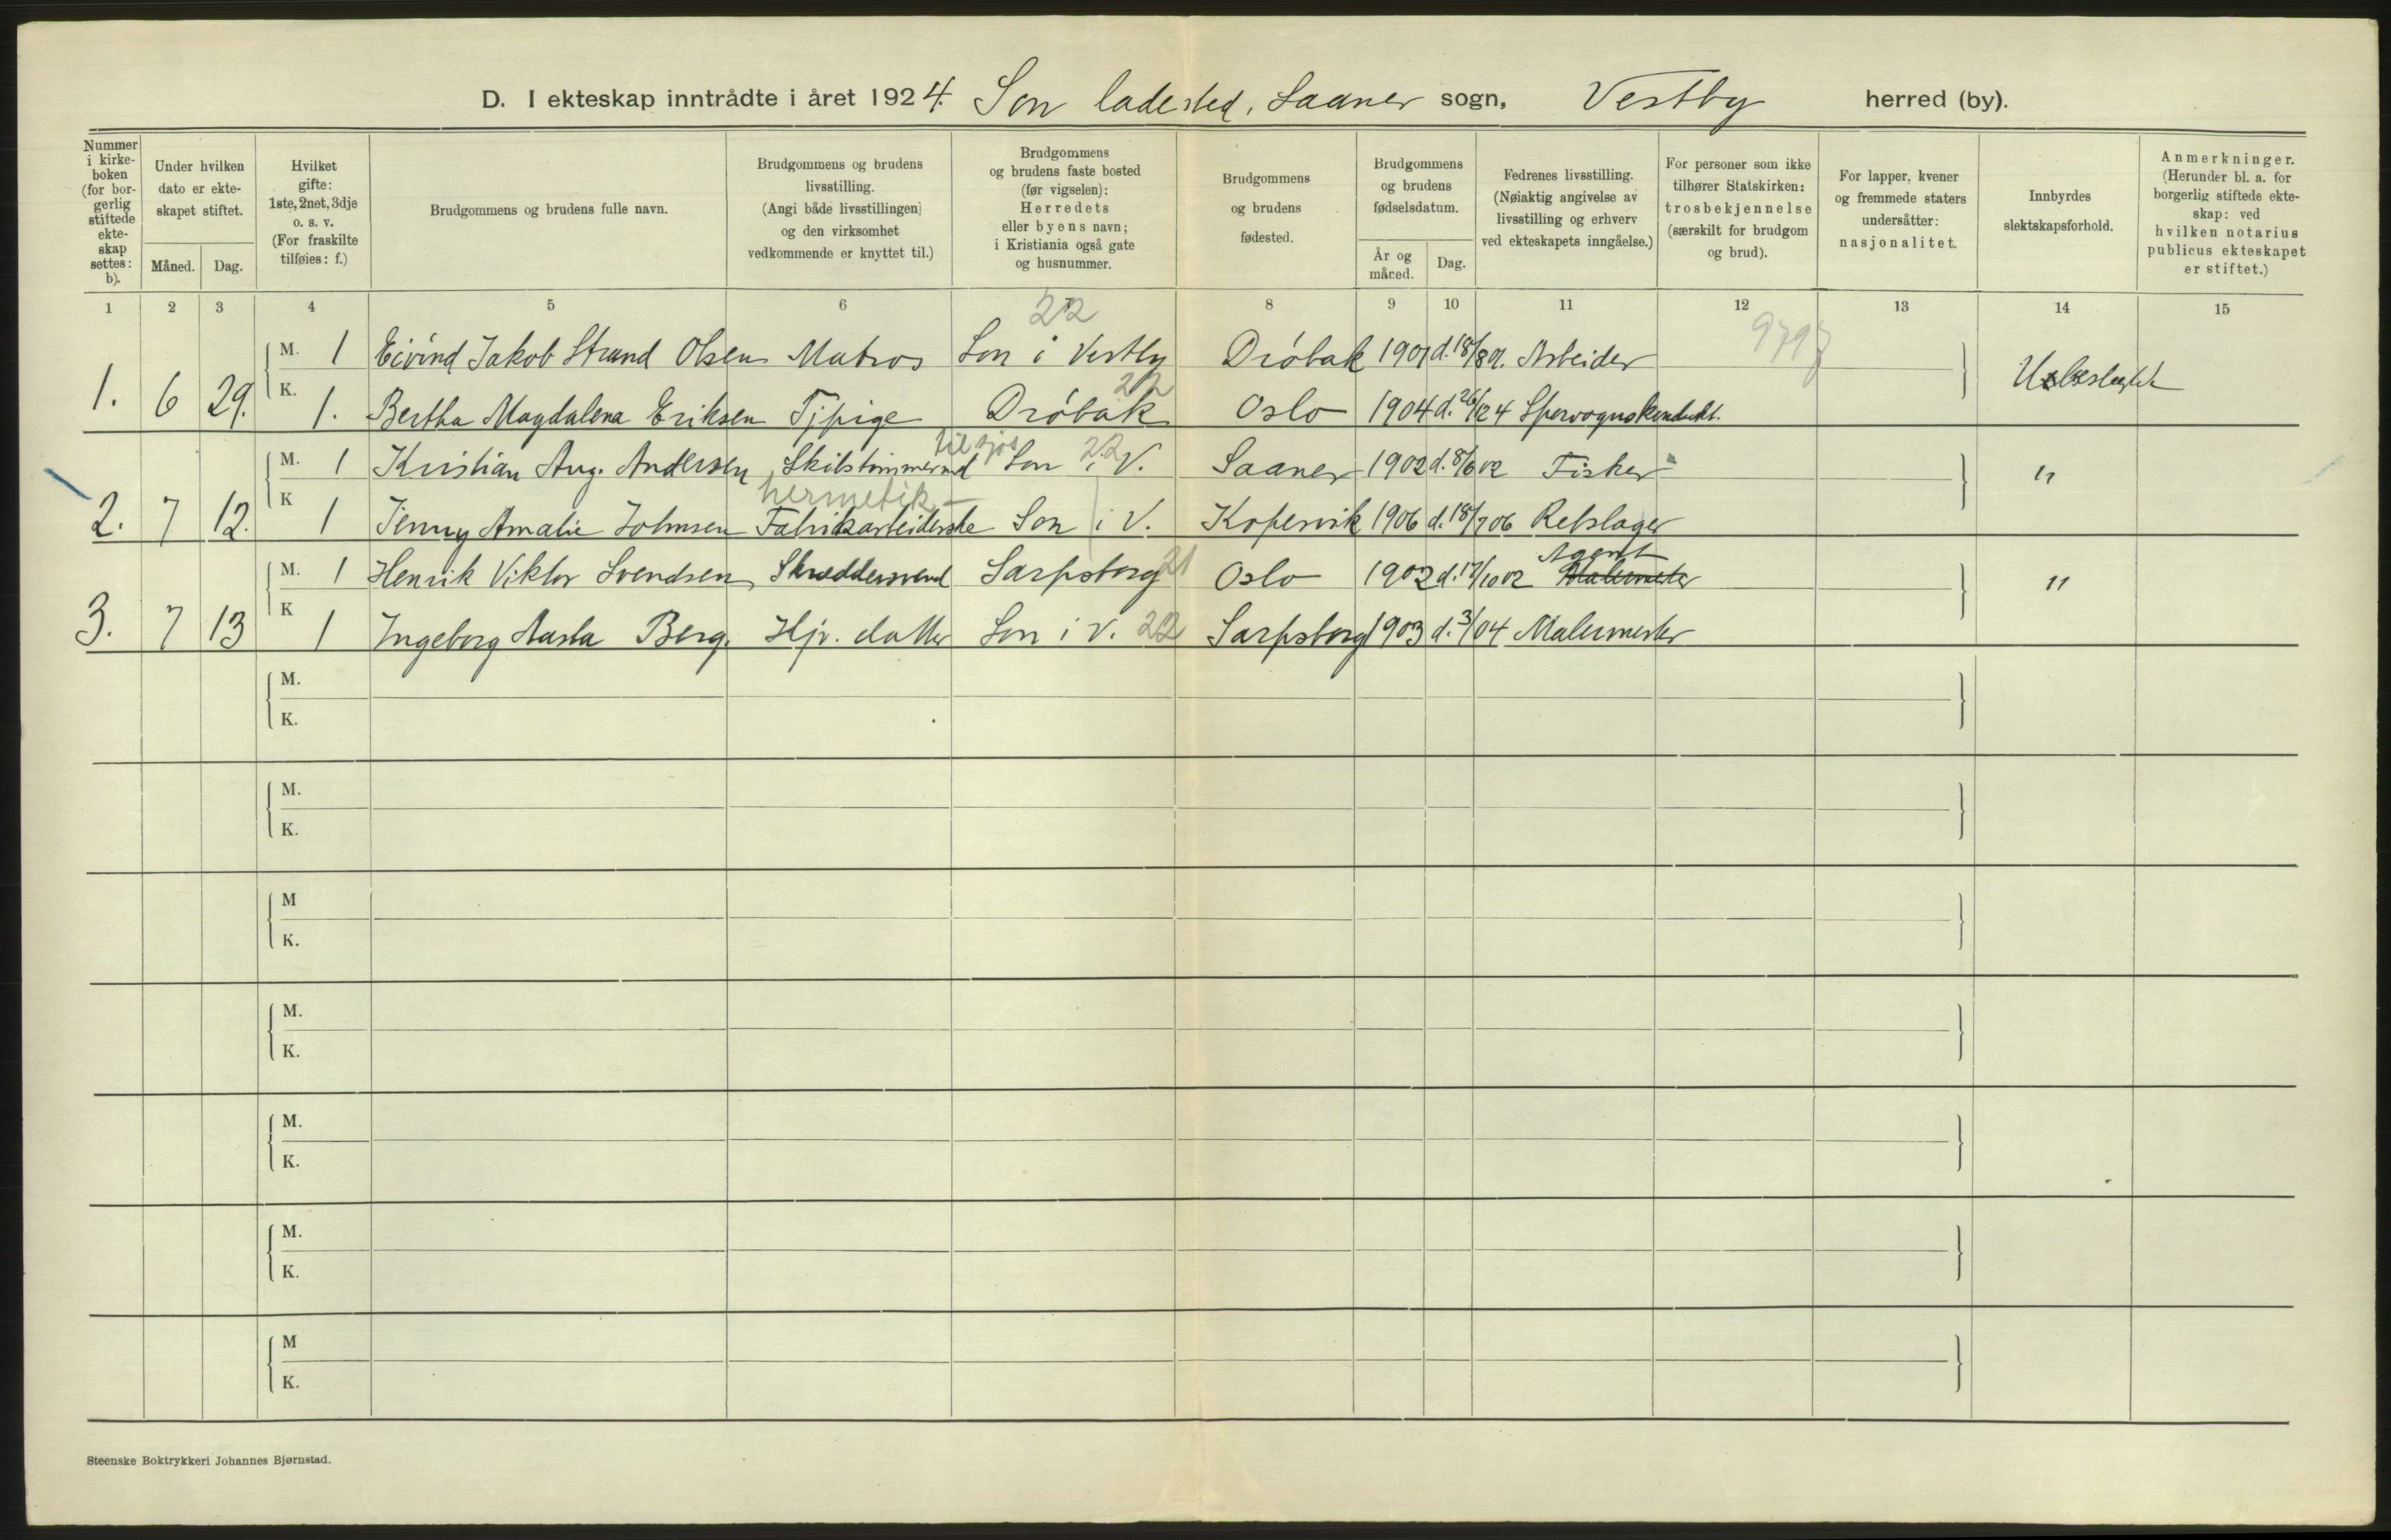 D. I ekteskap inntrådte i året 1924. Son ladested, Saaner sogn, Vestby herred (by).
Nummer i kirkeboken (for borgerlig stiftede ekteskap settes: b).
Under hvilken dato er ekteskapet stiftet.
Måned. Dag.
Hvilket gifte: 1ste, 2net, 3dje o. s. v. (For fraskilte tilføies: f.)
Brudgommens og brudens fulle navn.
Brudgommens og brudens livsstilling. (Angi både livsstillingen og den virksomhet vedkommende er knyttet til.)
Brudgommens og brudens faste bosted (før vigselen): Herredets eller byens navn; i Kristiania også gate og husnummer.
Brudgommens og brudens fødested.
Brudgommens og brudens fødselsdatum.
År og måned. Dag.
Fedrenes livsstilling. (Nøiaktig angivelse av livsstilling og erhverv ved ekteskapets inngåelse.)
For personer som ikke tilhører Statskirken: trosbekjennelse (særskilt for brudgom og brud).
For lapper, kvener og fremmede staters undersåtter: nasjonalitet.
Innbyrdes slektskapsforhold.
Anmerkninger. (Herunder bl. a. for borgerlig stiftede ekteskap: ved hvilken notarius publicus ekteskapet er stiftet.)
1 2 3 4 5 6 8 9 10 11 12 13 14 15
22
M. 1 Eivind Jakob Strand Olsen Matros Son i Vestby Drøbak 1901 d. 18/8 01. Arbeider
1. 6 29. Ubeslegtet
22
K. 1. Bertha Magdalena Eriksen Tjpige Drøbak Oslo 1904 d. 26/12 4 Sporvognskondukt.
til sjøs 22
M. 1 Kristian Aug. Andersen Son i V. Saaner 1902 d. 8/6 02 Fisker
2. 7 12. "
hermetik-
K 1 Jenny Amalie Johnsen Fabrikarbeiderske Son i V. Kopervik 1906 d. 18/7 06 Repslager
Agent
M. 1 Henrik Viktor Svendsen Skreddersvend Sarpsborg 21 Oslo 1902 d. 17/10 02 Malermester
3. 7 13 "
K 1 Ingeborg Aasta Berg. Hjv. datter Son i V. 22 Sarpsborg 1903 d. 3/ 04 Malermester
M.
K.
M.
K.
M
K.
M.
K.
M.
K.
M.
K.
M
K.
Steenske Boktrykkeri Johannes Bjørnstad.